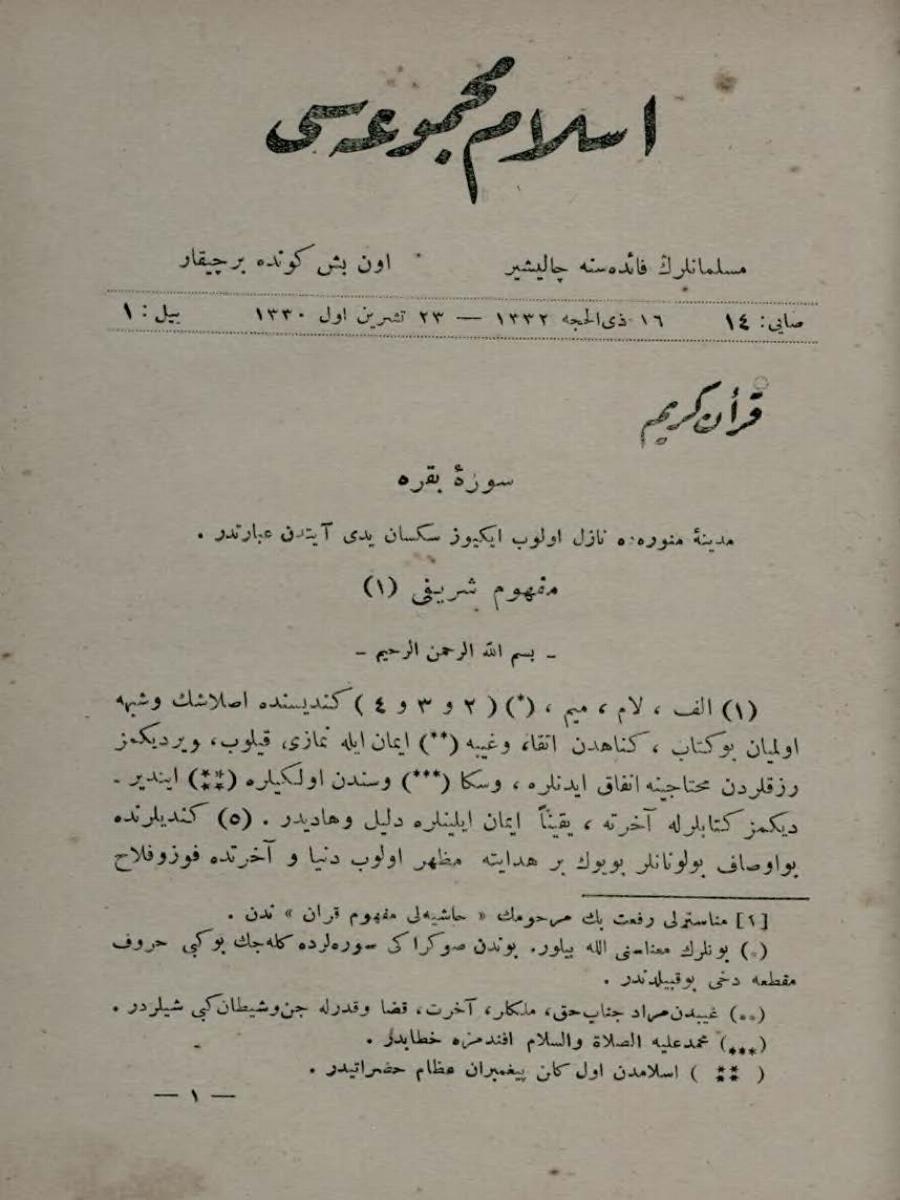 اسلام مجموعه‌سی
مسلمانلرڭ فائده‌سنه چالیشیر
اون بش کونده بر چیقار
صایی: ١٤ ١٦ ذی‌الحجه ١٣٣٢ — ٢٣ تشرین اول ١٣٣٠ ییل: ١
قرأن کریم
سورهٔ بقره
مدینهٔ منوره‌ده نازل اولوب ایکیوز سکسان یدی آیتدن عبارتدر .
مفهوم شریفی (١)
ـ بسم الله الرحمن الرحیم ـ
(١) الف ، لام ، میم ، (*) (٢ و ٣ و ٤) کندیسنده اصلا شك وشبهه
اولمیان بوکتاب ، کناهدن اتقا، وغیبه (**) ایمان ایله نمازی، قیلوب، ویردیکمز
رزقلردن محتاجینه انفاق ایدنلره ، وسکا (***) وسندن اولکیلره (****) ایندیر ـ
دیکمز کتابلرله آخرته ، یقیناً ایمان ایلینلره دلیل وهادیدر . (٥) کندیلرنده
بواوصاف بولونانلر بویوك بر هدایته مظهر اولوب دنیا و آخرتده فوزوفلاح
[١] مناسترلی رفعت بك مرحومك « حاشیه‌لی مفهوم قران » ندن .
(*) بونلرك معناسنی الله بیلور. بوندن صوکرا کی سوره‌لرده کله‌جك بوکبی حروف
مقطعه دخی بوقبیلدندر .
(**) غیبدن مراد جناب حق، ملکلر، آخرت، قضا وقدرله جن وشیطان کبی شیلردر .
(***) محمد علیه الصلاة والسلام افندمزه خطابدر .
(****) اسلامدن اول کلن پیغمبران عظام حضراتیدر .
— ١ —